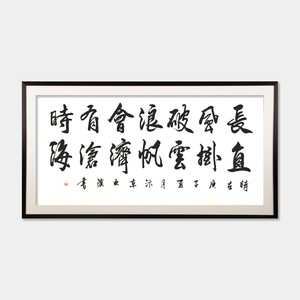 長風破浪會有時
直掛雲帆濟滄海
時在庚子夏月汴京書